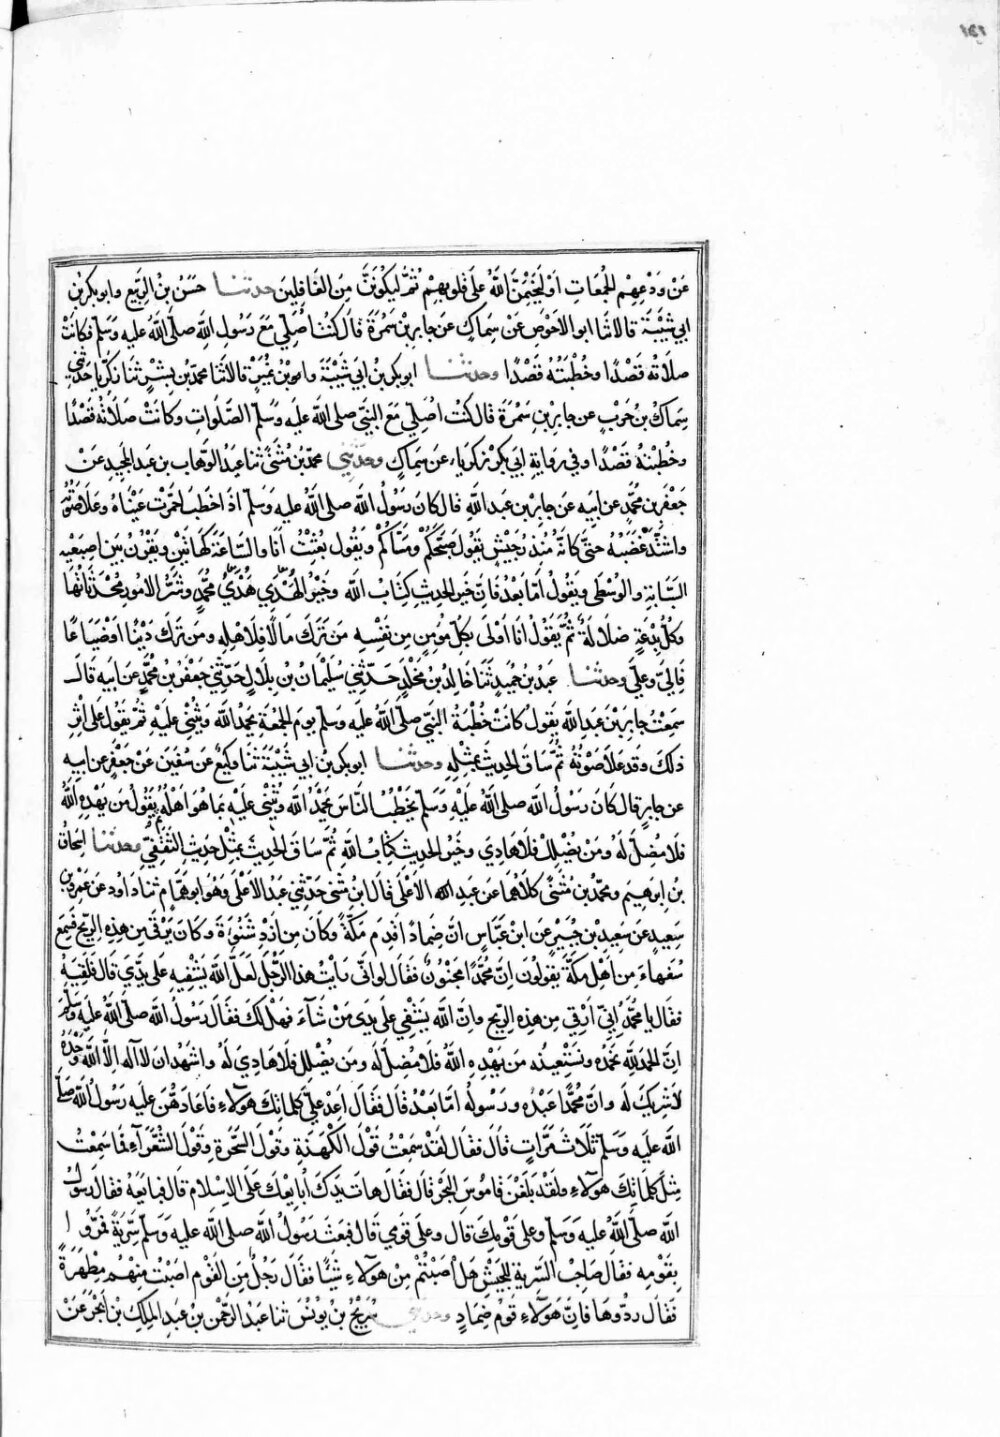 عَنْ وَدْعِهِمْ الجُمُعَاتِ أَوْ لَيَخْتِمَنَّ اللهُ عَلَى قُلُوبِهِمْ ثُمَّ لَيَكُونُنَّ مِنَ الغَافِلِينَ حدثنا حَسَنُ بْنُ الرَّبِيعِ وابو بكر بن
ابي شَيْبَةَ قالا ثنا ابو الاَحْوَصِ عَنْ سِمَاكٍ عَن جابرِ بْنِ سَمُرَةَ قالَ كُنتُ اُصَلِّي مَعَ رَسُولِ اللهِ صلّى اللهُ عليه وَسَلّم فكانَتْ
صَلَاتُهُ قَصْدًا وخُطْبَتُهُ قَصْدًا وحدثنا ابو بكر بن ابي شَيْبَةَ وابنُ نُمَيْرٍ قالا ثنا محمد بن بِشْرٍ ثنا زكريا حدثني
سِمَاكُ بن حَرْبٍ عن جابِرِ بْنِ سَمُرَةَ قالَ كُنْتُ اُصَلِّي مَعَ النبيِّ صلى اللهُ عليه وَسَلّم الصَّلَواتِ وكانَتْ صَلَاتُهُ قَصْدًا
وخُطْبَتُهُ قَصْدًا وفي رِوايةِ ابي بَكْرٍ زكرِيّاء عن سِماكٍ وحدّثني محمد بْن مُثَنًّى ثنا عبدُ الوَهّابِ بن عَبدِ المَجِيدِ عَنْ
جَعْفَرِ بن مُحمّدٍ عن ابيه عن جابِرِ بْنِ عبدِ اللهِ قالَ كانَ رَسُولُ اللهِ صلى اللهُ عليه وَسَلّم اذَا خطَبَ احْمَرَّت عَيْنَاهُ وعَلَا صَوْتُهُ
واشتَدَّ غَضَبُهُ حتّى كَانّهُ مُنذِرُ جَيْشٍ يَقولُ صَبَّحَكُمْ ومَسَّاكُمْ ويَقُولُ بُعِثْتُ أَنَا والسَّاعَةَ كَهَاتَيْنِ ويَقْرِنُ بَيْنَ اِصبَعيه
السَّبّابةِ والوُسْطَى ويَقُولُ اَمّا بَعْدُ فَاِنّ خَيرَ الحَدِيثِ كِتَابُ الله وخَيْرُ الهَدْيِ هَدْيُ مُحَمَّدٍ وشَرُّ الامُورِ مُحْدَثَاتُهَا
وكلُّ بِدْعَةٍ ضَلَالةٌ ثُمَّ يَقُولُ اَنَا اَوْلَى بِكُلِّ مُؤمِنٍ مِن نَفْسِهِ مَن تَرَكَ مالًا فَلِاَهلِهِ ومن تَرَكَ دَيْنًا اَوْ ضَيَاعًا
فَاِلَيَّ وعَلَيَّ وحدثنا عَبد بن حُمَيدٍ ثنا خَالِدُ بن مَخْلَدٍ حَدّثَني سُلَيْمانُ بْنُ بِلَالٍ حَدّثني جَعْفَرُ بنُ مُحمّدٍ عَن اَبيه قالَ
سَمِعْتُ جابِرَ بْنَ عَبدِ الله يَقولُ كانَتْ خُطْبَةُ النبَيِّ صلّى اللهُ عليه وَسَلّم يومَ الجُمعَةِ يَحْمَدُ اللهَ ويُثْنِي عَلَيْهِ ثمّ يَقُولُ عَلَى اِثْرِ
ذلكَ وقَد عَلَا صَوْتُهُ ثمّ سَاقَ الحَدِيثَ بمثلِهِ وحدثنا ابو بكر بن ابي شَيْبَةَ ثنا وكيعٌ عَن سُفْيَن عَنْ جَعْفَرٍ عَن ابيه
عن جابرٍ قال كَانَ رَسُولُ اللهِ صلى اللهُ عَلَيْهِ وَسَلّم يَخْطُبُ النَّاسَ يَحْمَدُ اللهَ ويُثْنِي عليْهِ بِمَا هُوَ اَهْلُهُ ثمّ يَقُولُ مَن يَهْدِهِ اللهُ
فلا مُضِلَّ لَهُ ومَنْ يُضْلِلْ فَلا هادِيَ وخَيرُ الحَدِيثِ كِتَابُ اللهِ ثمّ سَاقَ الحَديثَ بمِثْلِ حَديثِ الثَّقَفِيِّ وحدثنا اِسحَاقُ
بْن اِبرهِيمَ ومحمّد بن مُثَنًّى كِلَاهُمَا عن عَبدِ الاَعْلَى قال ابنُ مُثَنًّى حَدّثني عَبدُ الاَعْلَى وهُو ابو هَمّامٍ ثنا دَاوُد عَن عَمرِو بن
سَعِيدٍ عن سَعِيد بْن جُبَيْرٍ عَن ابْن عَبّاسٍ انّ ضِمادًا قَدِمَ مَكّةَ وكانَ مِن اَزْدِ شَنُوْءَةَ وكانَ يَرْقِي مِن هذِهِ الرِّيحِ فسَمِعَ
سُفَهاءَ مِن اَهْلِ مكّةَ يَقُولُونَ اِنّ مُحَمّدًا مجنونٌ فقَال لَو اَنّي رَاَيتُ هذا الرّجُلَ لَعَلَّ اللهَ يَشْفِيهِ على يَدَيَّ قال فَلَقِيَهُ
فقَال يا مُحمّدُ اِنّي اَرْقِي مِن هذِهِ الرِّيحِ واِنّ اللهَ يَشْفِي عَلى يَدَيَّ مَنْ شَآءَ فهَلْ لكَ فقَالَ رَسُولُ اللهِ صلّى اللهُ عَلَيْهِ وسَلّمَ
اِنّ الحَمْدَ للهِ نَحْمَدُهُ ونَسْتَعِينُه مَن يَهْدِهِ اللهُ فَلا مُضِلّ لَه ومَن يُضْلِلْ فَلا هادِيَ لَهُ واشْهَدُ ان لا اله الا الله وَحْدَهُ
لا شَرِيكَ لَه واَنّ مُحمّدًا عَبْدُه ورَسُولُه امّا بَعْدُ قال فقَالَ اَعِدْ عليَّ كلماتِكَ هَؤُلَاءِ فاَعَادَهُنّ عَليه رَسُولُ اللهِ صلّى
الله عَليه وَسَلّم ثَلَاثَ مَرَّاتٍ قالَ فقالَ لقَدْ سَمِعْتُ قَوْلَ الكَهَنةِ وقَوْلَ السَّحَرَةِ وقَوْلَ الشُّعَرَآءِ فما سَمِعْتُ
مِثلَ كلِمَاتِكَ هَؤُلَاءِ ولقَد بَلَغْنَ قامُوسَ البَحْرِ قالَ فقَالَ هاتِ يَدَكَ اُبايِعْكَ عَلَى الاِسْلامِ قالَ فبايَعَهُ فقال رَسُولُ
اللهِ صلّى اللهُ عليه وَسَلّم وعلى قَوْمِكَ قال وعَلَى قَوْمي قَالَ فبعَثَ رَسُولُ اللهِ صلى الله عَليه وَسَلّم سَرِيّةً فمَرُّوا
بقَوْمِهِ فقَالَ صَاحِبُ السَّرِيّةِ للجَيْشِ هَلْ اَصَبْتُمْ مِنْ هَؤُلَاءِ شَيئًا فقَالَ رَجُلٌ مِنَ القَوْمِ اصَبْتُ مِنْهُمْ مِطْهَرَةً
فَقَالَ رُدُّوهَا فاِنَّ هَؤُلَاءِ قَومُ ضِمَادٍ وحدثني سُرَيْجُ بنُ يُونُسَ ثنا عَبْدُ الرّحْمنِ بنُ عبدِ المَلِكِ بْنِ اَبْجَرَ عَنْ